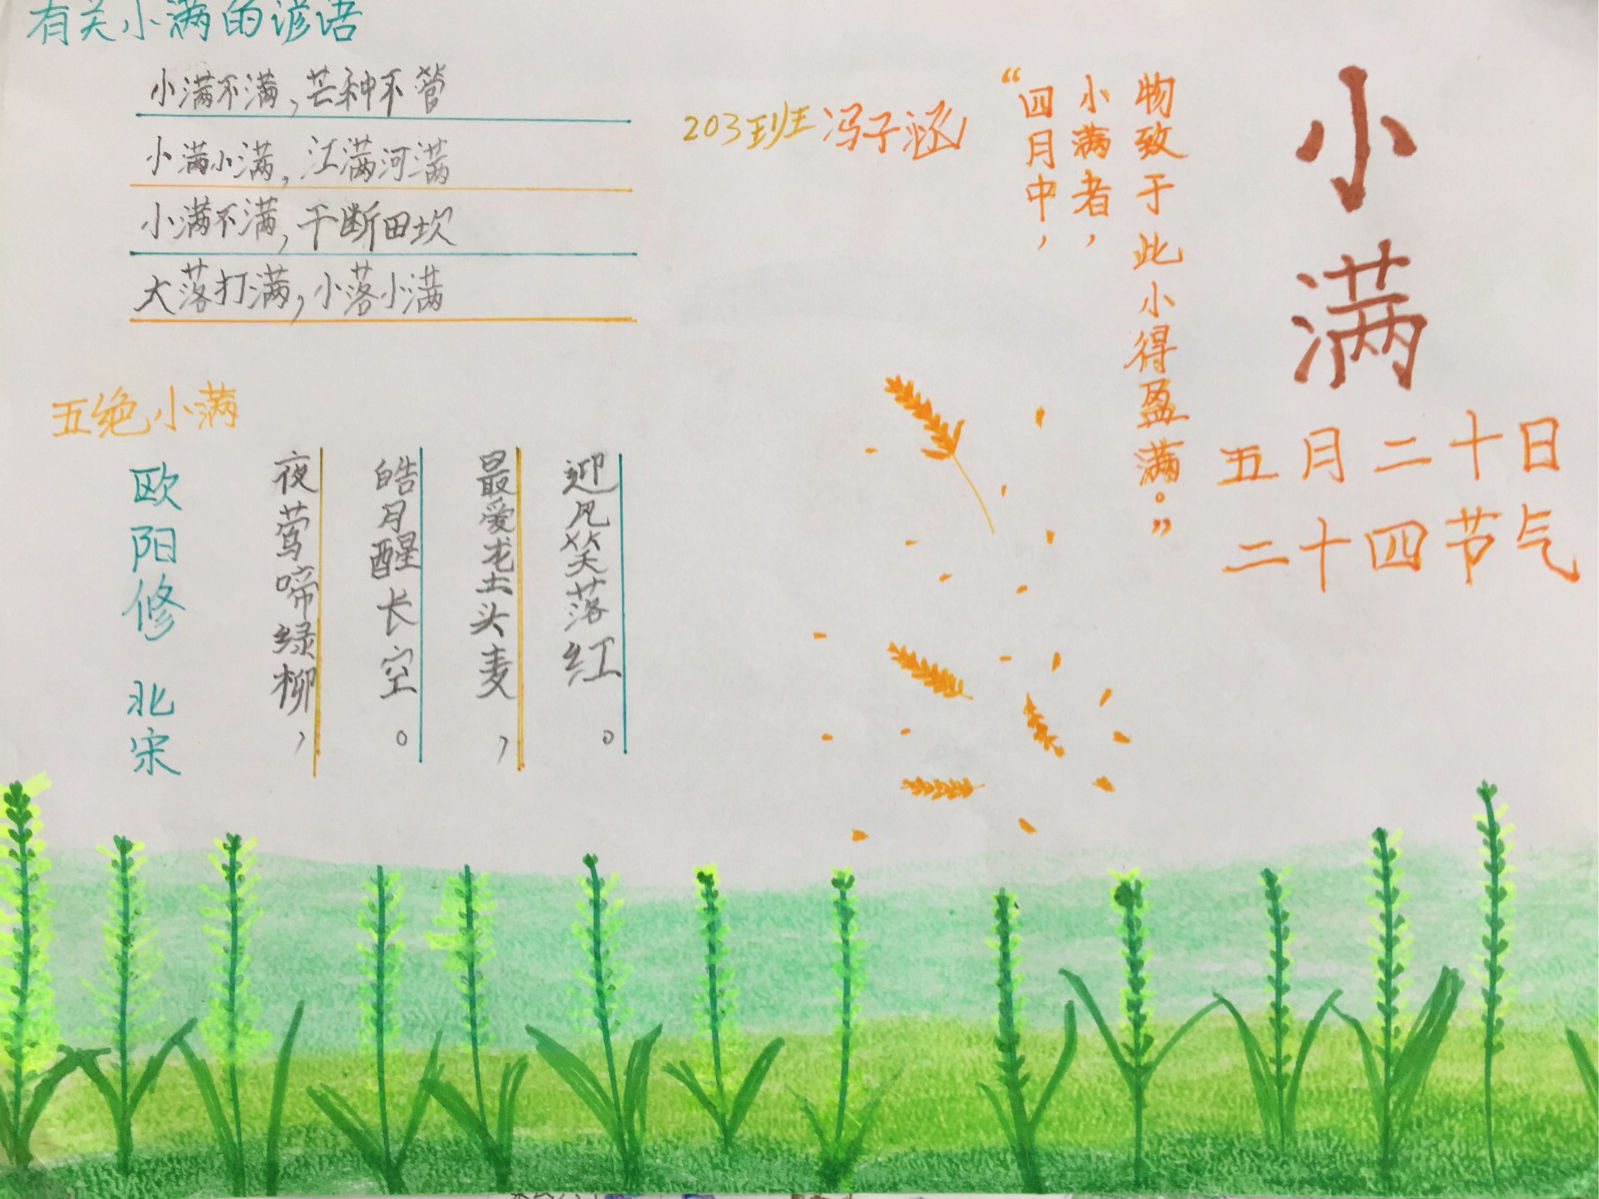 有关小满的谚语
小满不满,芒种不管
小满小满,江满河满
小满不满,干断田坎
大落打满,小落小满
203班 冯子涵
“四月中,
小满者,
物致于此小得盈满。”
小满
五月二十日
二十四节气
五绝小满
欧阳修 北宋
夜莺啼绿柳,
皓月醒长空。
最爱垄头麦,
迎风笑落红。